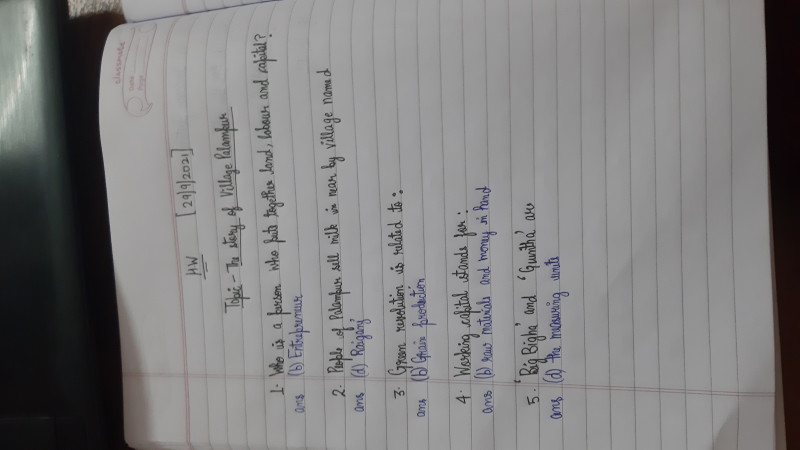 classmate
Date
Page
HW [29/9/2021]
Topic - The story of Village Palampur
1. Who is a person who puts together land, labour and capital?
ans (b) Entrepreneur
2. People of Palampur sell milk in near by village named
ans (d) Raiganj
3. Green revolution is related to:
ans (b) Grain production
4. Working capital stands for:
ans (b) raw materials and money in hand
5. 'Big Bigha' and 'Guintha' are
ans (d) the measuring units